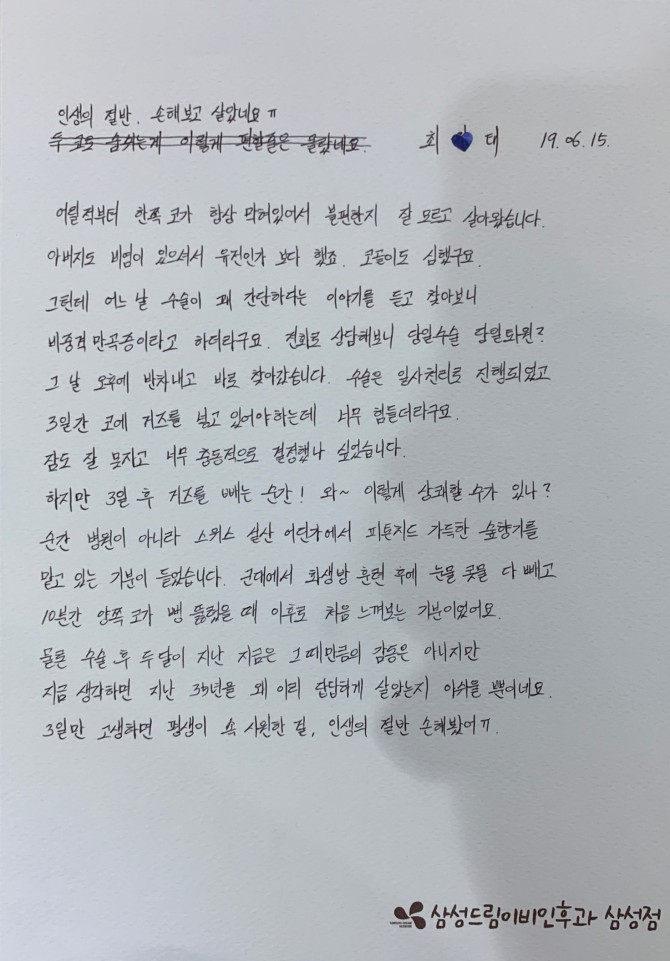 인생의 절반, 손해보고 살았네요 ㅠ
두 코로 숨쉬는게 이렇게 편할줄은 몰랐네요.
최 대 19.06.15.
어릴적부터 한쪽 코가 항상 막혀있어서 불편한지 잘 모르고 살아왔습니다.
아버지도 비염이 있으셔서 유전인가 보다 했죠. 코골이도 심했구요.
그런데 어느 날 수술이 꽤 간단하다는 이야기를 듣고 찾아보니
비중격만곡증이라고 하더라구요. 전화로 상담해보니 당일수술 당일퇴원?
그 날 오후에 반차내고 바로 찾아갔습니다. 수술은 일사천리로 진행되었고
3일간 코에 거즈를 넣고 있어야하는데 너무 힘들더라구요.
잠도 잘 못자고 너무 충동적으로 결정했나 싶었습니다.
하지만 3일 후 거즈를 빼는 순간! 와~ 이렇게 상쾌할 수가 있나?
순간 병원이 아니라 스위스 설산 어딘가에서 피톤치드 가득한 숲향기를
맡고 있는 기분이 들었습니다. 군대에서 화생방 훈련 후에 눈물 콧물 다 빼고
10분간 양쪽 코가 뻥 뚫렸을 때 이후로 처음 느껴보는 기분이었어요.
물론 수술 후 두달이 지난 지금은 그때만큼의 감동은 아니지만
지금 생각하면 지난 35년을 왜 이리 답답하게 살았는지 아쉬울 뿐이네요.
3일만 고생하면 평생이 속 시원한 걸, 인생의 절반 손해봤어ㅠ.
삼성드림이비인후과 삼성점